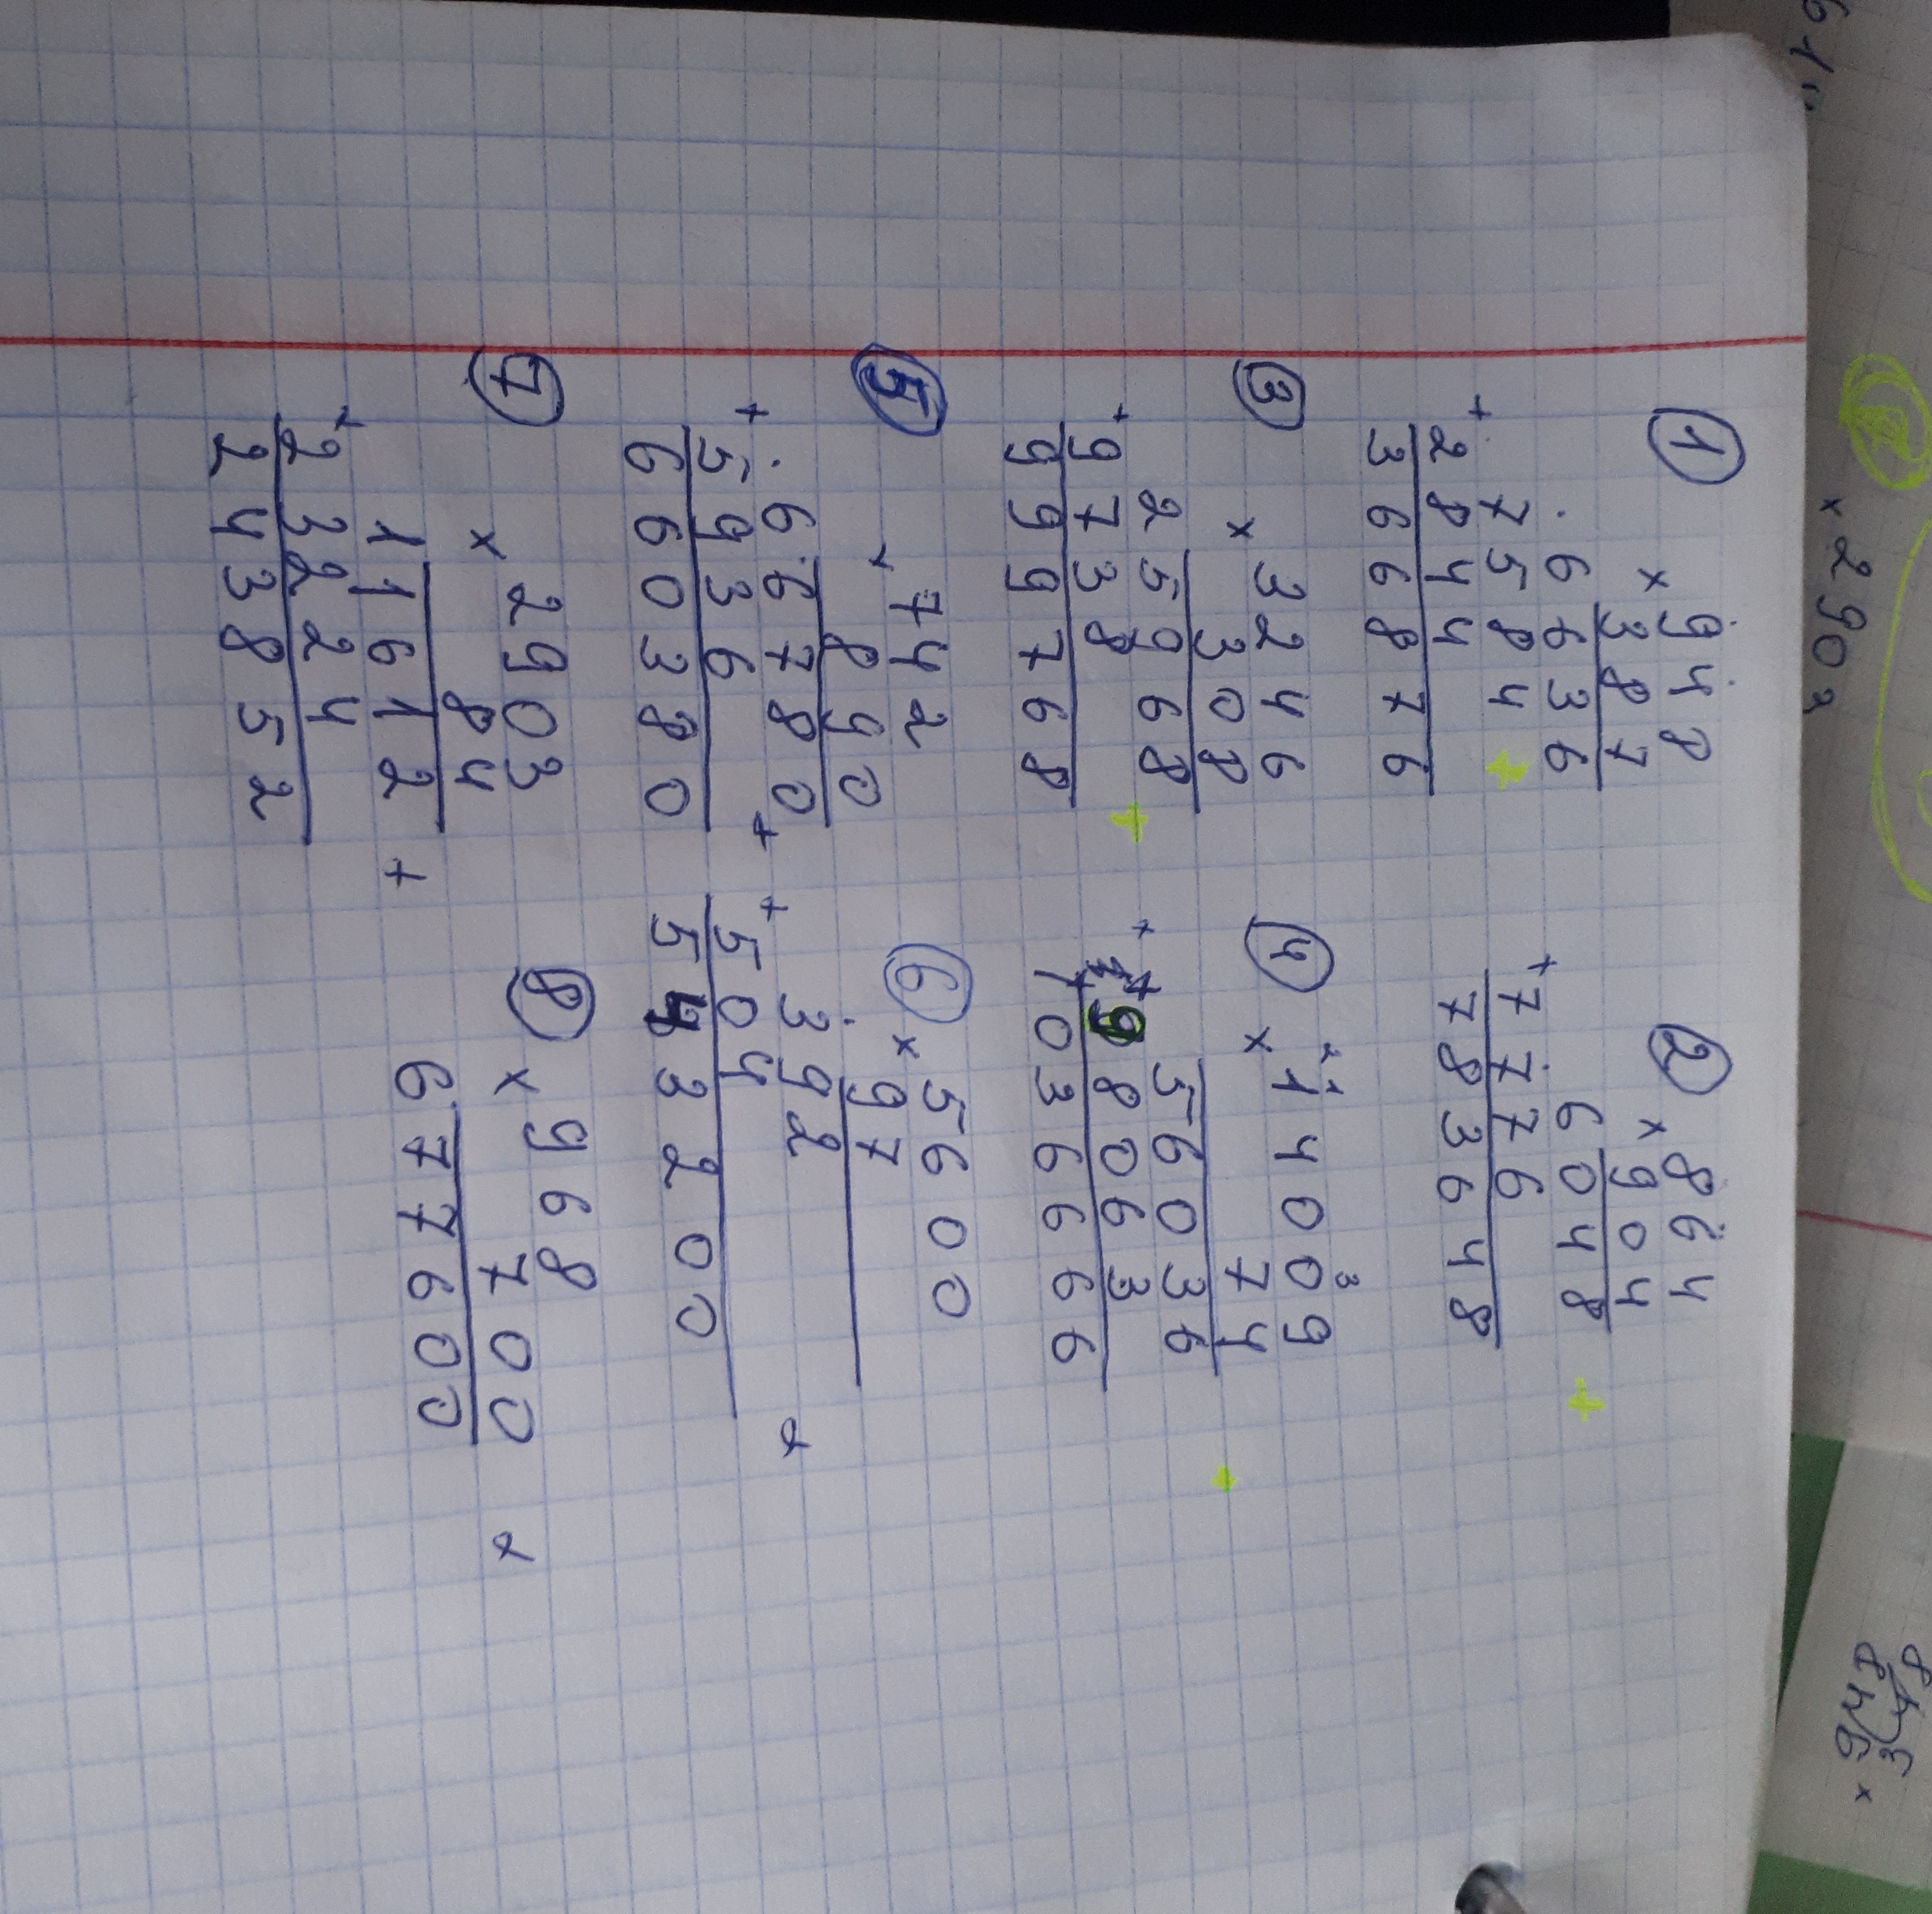 ① ② 
× 948 × 864
387 904
6636 6048
+ 7584 + 7776
2844 783648
366876
③ × 3246 ④ × 14009
308 74
25968 56036
+ 9738 + 98063
999768 1036666
⑤ × 742 ⑥ × 5600
890 97
66780 392
+ 5936 + 504
660380 543200
⑦ × 2903 ⑧ × 968
84 700
11612 677600
+ 23224
243852
× 290